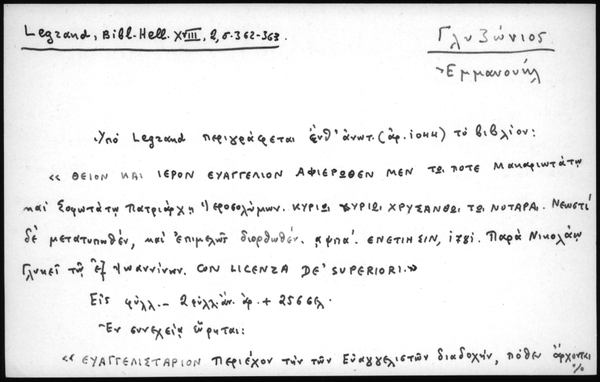 Legrand, Bibl. Hell. XVIII, 2, σ. 362-363.
Γλυζώνιος
Ἐμμανουήλ
Ὑπό Legrand περιγράφεται ἐνθ' ἀνωτ. (ἀρ. 1044) τό βιβλίον:
« ΘΕΙΟΝ ΚΑΙ ΙΕΡΟΝ ΕΥΑΓΓΕΛΙΟΝ ΑΦΙΕΡΩΘΕΝ ΜΕΝ ΤΩ ΠΟΤΕ Μακαριωτάτῳ
καί Σοφωτάτῳ Πατριάρχῃ Ἱεροσολύμων. ΚΥΡΙΩ ΚΥΡΙΩ ΧΡΥΣΑΝΘΩ ΤΩ ΝΟΤΑΡΑ. Νεωστί
δέ μετατυπωθέν, καί ἐπιμελῶς διορθωθέν. ͵αψπα΄. ΕΝΕΤΙΗΣΙΝ, 1781. Παρά Νικολάῳ
Γλυκεῖ τῷ ἐξ Ἰωαννίνων. CON LICENZA DE' SUPERIORI.»
Εἰς φύλλ. - 2 φύλλ. ἀν. ἀρ. + 256 σελ.
Ἐν συνεχείᾳ εὕρηται:
« ΕΥΑΓΓΕΛΙΣΤΑΡΙΟΝ Περιέχον τήν τῶν Εὐαγγελιστῶν διαδοχήν, πόθεν ἄρχονται
%